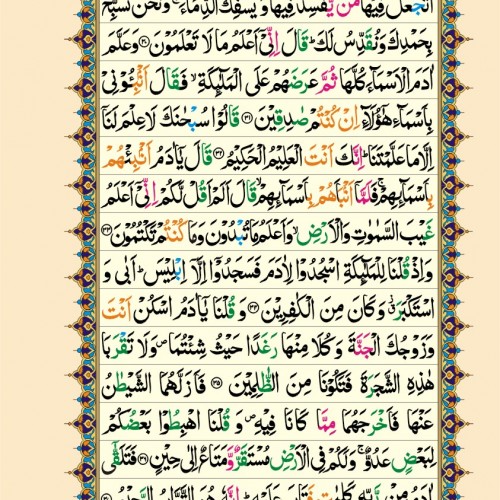 اَتَجْعَلُ فِیْهَا مَنْ یُّفْسِدُ فِیْهَا وَیَسْفِكُ الدِّمَآءَ ۚ وَنَحْنُ نُسَبِّحُ
بِحَمْدِكَ وَنُقَدِّسُ لَكَ ؕ قَالَ اِنِّیْۤ اَعْلَمُ مَا لَا تَعْلَمُوْنَ ﴿۳۰﴾ وَعَلَّمَ
اٰدَمَ الْاَسْمَآءَ كُلَّهَا ثُمَّ عَرَضَهُمْ عَلَی الْمَلٰٓئِكَةِ ۙ فَقَالَ اَنْۢبِـُٔوْنِیْ
بِاَسْمَآءِ هٰۤؤُلَآءِ اِنْ كُنْتُمْ صٰدِقِیْنَ ﴿۳۱﴾ قَالُوْا سُبْحٰنَكَ لَا عِلْمَ لَنَاۤ
اِلَّا مَا عَلَّمْتَنَا ؕ اِنَّكَ اَنْتَ الْعَلِیْمُ الْحَكِیْمُ ﴿۳۲﴾ قَالَ یٰۤاٰدَمُ اَنْۢبِئْهُمْ
بِاَسْمَآئِهِمْ ۚ فَلَمَّاۤ اَنْۢبَاَهُمْ بِاَسْمَآئِهِمْ ۙ قَالَ اَلَمْ اَقُلْ لَّكُمْ اِنِّیْۤ اَعْلَمُ
غَیْبَ السَّمٰوٰتِ وَالْاَرْضِ ۙ وَاَعْلَمُ مَا تُبْدُوْنَ وَمَا كُنْتُمْ تَكْتُمُوْنَ ﴿۳۳﴾
وَاِذْ قُلْنَا لِلْمَلٰٓئِكَةِ اسْجُدُوْا لِاٰدَمَ فَسَجَدُوْۤا اِلَّاۤ اِبْلِیْسَ ؕ اَبٰی وَ
اسْتَكْبَرَ ٭۫ وَكَانَ مِنَ الْكٰفِرِیْنَ ﴿۳۴﴾ وَ قُلْنَا یٰۤاٰدَمُ اسْكُنْ اَنْتَ
وَ زَوْجُكَ الْجَنَّةَ وَ كُلَا مِنْهَا رَغَدًا حَیْثُ شِئْتُمَا ۪ وَلَا تَقْرَبَا
هٰذِهِ الشَّجَرَةَ فَتَكُوْنَا مِنَ الظّٰلِمِیْنَ ﴿۳۵﴾ فَاَزَلَّهُمَا الشَّیْطٰنُ
عَنْهَا فَاَخْرَجَهُمَا مِمَّا كَانَا فِیْهِ ۪ وَ قُلْنَا اهْبِطُوْا بَعْضُكُمْ
لِبَعْضٍ عَدُوٌّ ۚ وَلَكُمْ فِی الْاَرْضِ مُسْتَقَرٌّ وَّمَتَاعٌ اِلٰی حِیْنٍ ﴿۳۶﴾ فَتَلَقّٰۤی
اٰدَمُ مِنْ رَّبِّهٖ كَلِمٰتٍ فَتَابَ عَلَیْهِ ؕ اِنَّهٗ هُوَ التَّوَّابُ الرَّحِیْمُ ﴿۳۷﴾